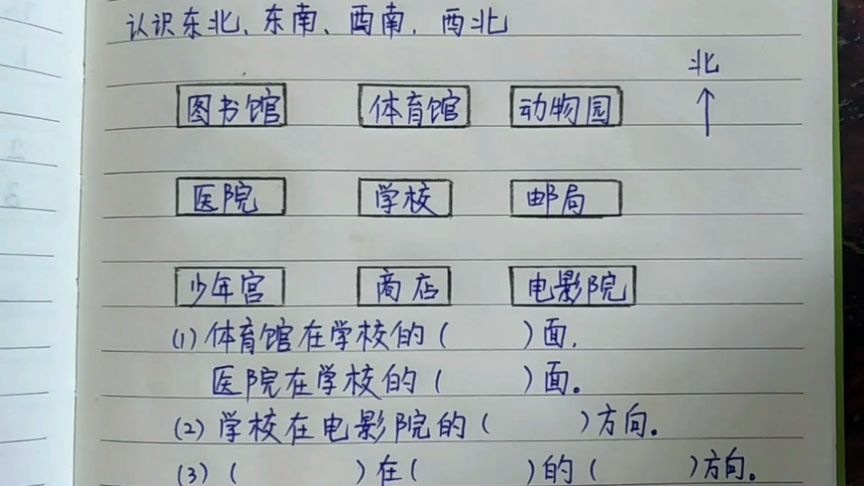 认识东北、东南、西南、西北
北
图书馆 体育馆 动物园
医院 学校 邮局
少年宫 商店 电影院
(1) 体育馆在学校的( )面,
医院在学校的( )面。
(2) 学校在电影院的( )方向。
(3) ( )在( )的( )方向。